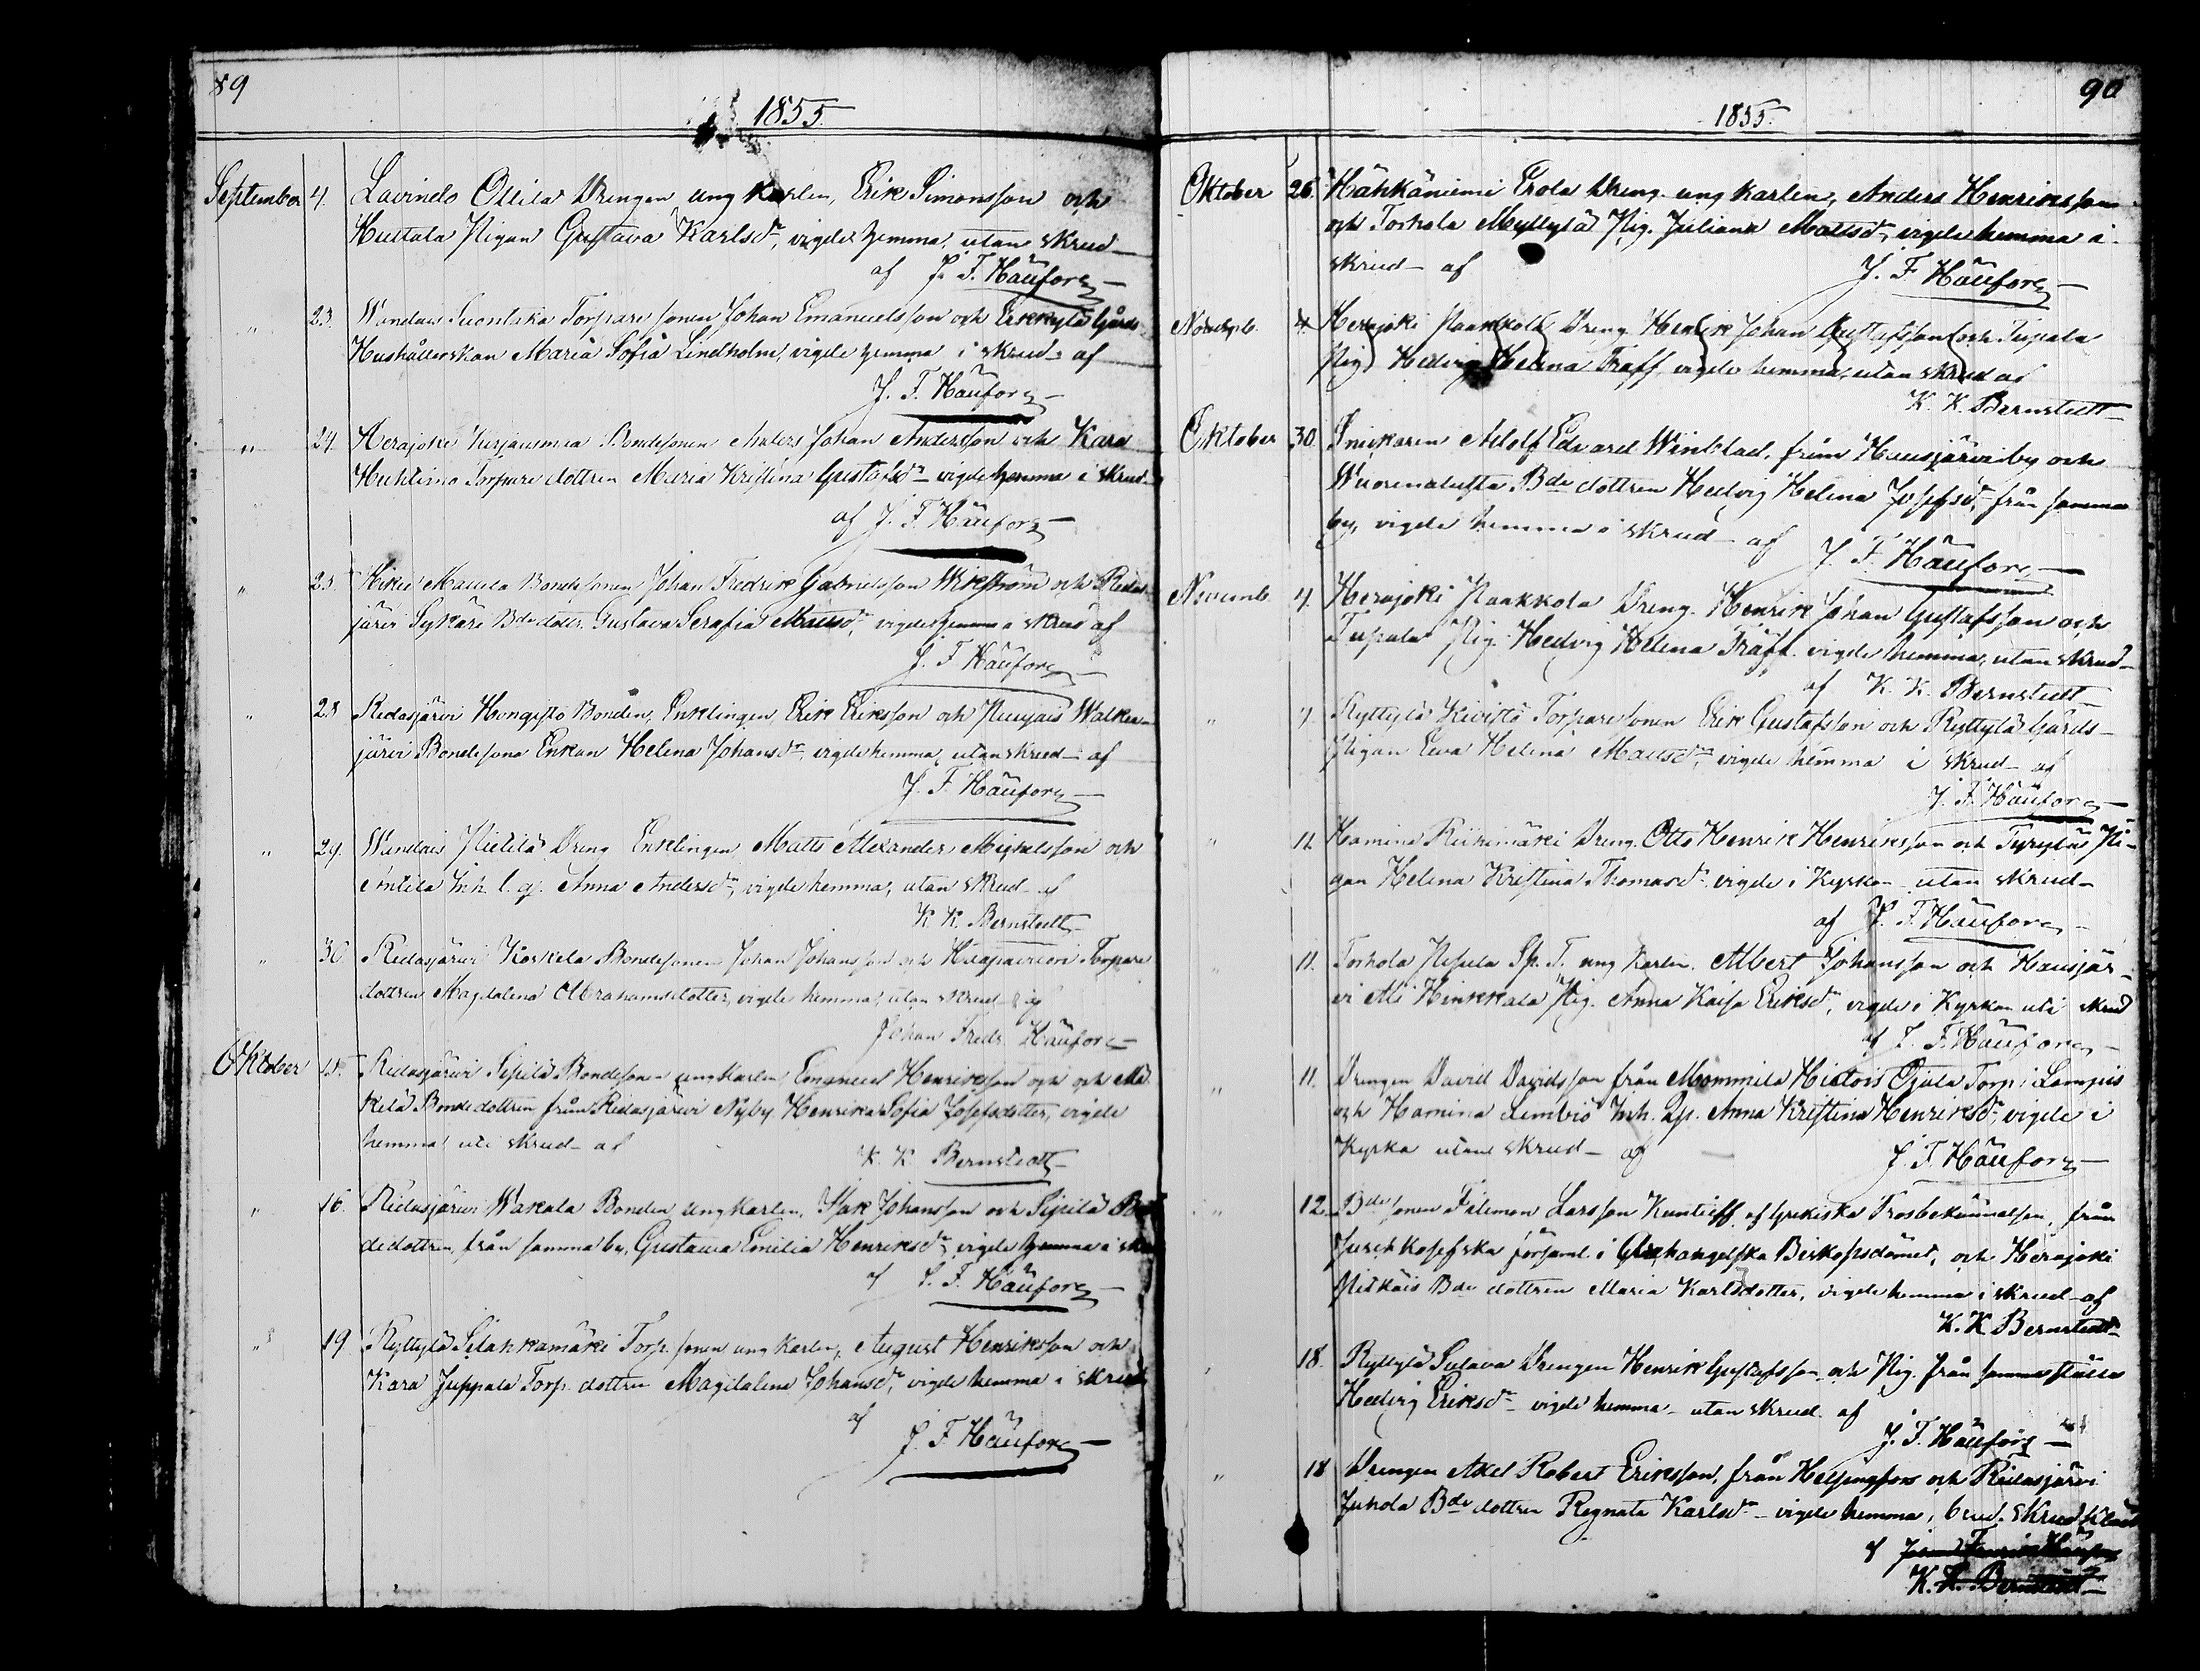 89
1855.
September 4. Lavindo Ollila Drengen ung karlen, Erik Simonsson och
Huttala Pigan Gustava Karlsdr, vigde hemma, utan skrud
af J. F. Häufors
" 23. Wandais Torpare sonen Johan Emanuelsson och Erkkylä Gårds
Hushållerskan Maria Sofia Lindholm, vigde hemma i skrud af
J. F. Häufors
" 24. Herajoki Bondesonen Anders Johan Andersson och Kara
Huhtimo Torpare dottren Maria Kristina Gustafsdr vigde hemma i skrud
af J. F. Häufors
" 25. Hikiä Maunula Bondesonen Johan Fredrik Gabrielsson Wikström och Ridas
järvi Sykäri Bde dottr. Gustava Serafia Mattsdr, vigde hemma i skrud af
J. F. Häufors
" 28 Ridasjärvi Hongisto Bonden, Enklingen, Erik Eriksson och Nuujais Walkia
järvi Bondesons Enkan Helena Johansdr, vigde hemma, utan skrud af
J. F. Häufors
" 29. Wandais Pietilä Dreng Enklingen, Matts Alexander Michelsson och
Anttila Inh. l. q. Anna Andersdr, vigde hemma, utan skrud af
K. K. Bernstedt
" 30 Ridasjärvi Koskela Bondesonen Johan Johansson och Torpare
dottren Magdalena Abrahamsdotter, vigde hemma, utan skrud af
Johan Fredr. Häufors
Oktober 15. Ridasjärvi Sipilä Bondesonen ungkarlen Emanuel Henriksson och och Mä
kelä Bonde dottren från Ridasjärvi Nyby Henrika Sofia Josefsdotter, vigde
hemma uti skrud af
K. K. Bernstedt
" 16. Ridasjärvi Wakala Bonden ungkarlen, Isak Johansson och Sipilä Bon
dedottren från samma by, Gustava Emilia Henriksdr, vigde hemma i skrud
af J. F. Häufors
" 19 Ryttylä Silahkamäki Torp. sonen ung karlen, August Henriksson och
Kara Juppala Torp. dottren Magdalena Johansdr, vigde hemma i skrud
af
J. F. Häufors
90
1855.
Oktober 26. Hähkäniemi Erola Dreng. ung karlen, Anders Henriksson
och Torhola Myllylä Pig. Juliana Mattsdr, vigde hemma i
skrud af J. F. Häufors
Novemb. 4. Herajoki Paakkola Dreng Henrik Johan Gustafsson och Tupala
Pig. Hedvig Helena Träff vigde hemma, utan skrud af
K. K. Bernstedt
Oktober 30. Snickaren Adolf Edvard Winblad, från Hausjärvi by och
Wuorenalusta Bde dottren Hedvig Helena Josefsdr, från samma
by, vigde hemma i skrud af
J. F. Häufors
Novemb. 4. Herajoki Paakkola Dreng. Henrik Johan Gustafsson och
Tupala Pig. Hedvig Helena Träff. vigde hemma, utan skrud
af K. K. Bernstedt
" 4. Ryttylä Kivistö Torparesonen Erik Gustafsson och Ryttylä Gårds
Pigan Eva Helena Mattsdr, vigde hemma i skrud af
J. F. Häufors
" 11. Hamina Riihimäki Dreng. Otto Henrik Henriksson och Pi-
gan Helena Kristina Thomasdr. vigde i Kyrkan utan skrud
af J. F. Häufors
" 11. Torhola Sp. T. ung karlen. Albert Johansson och Hausjär-
vi Ali Hinkkala Pig. Anna Kaisa Eriksdr, vigde i Kyrkan uti skrud
af J. F. Häufors
" 11. Drengen David Davidsson från Mommila Hietois Ojala Torp i Lampis
och Hamina Inh. Anna Kristina Henriksdr, vigde i
Kyrka utan skrud af J. F. Häufors
" 12. Bde sonen Filemon Larsson af Grekiska Trosbekännelsen, från
församl. i Archangelska Biskopsdömet, och Herajoki
Pitkäis Bde dottren Maria Karlsdotter, vigde hemma i skrud af
K. K. Bernstedt
" 18. Ryttylä Sulava Drengen Henrik Gustafsson och Pig. från samma ställe
Hedvig Eriksdr vigde hemma utan skrud. af
J. F. Häufors
" 18 Drengen Axel Robert Eriksson, från Helsingfors och Ridasjärvi
Juhola Bde dottren Regnata Karlsdr vigde hemma,
af
K. K. Bernstedt